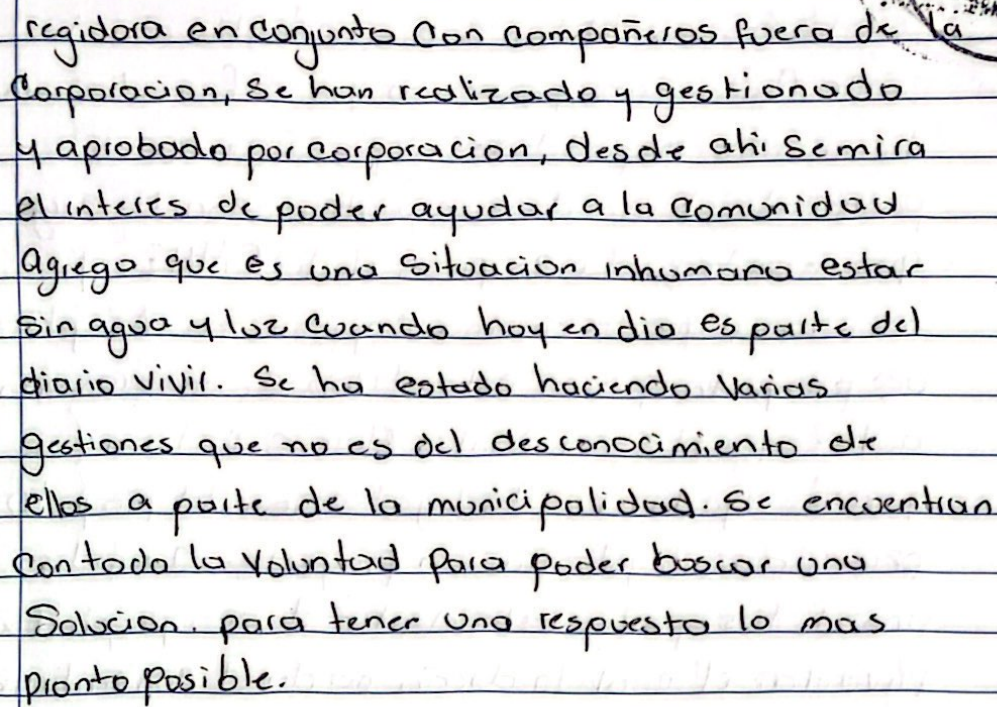 regidora en conjunto con compañeros fuera de la
Corporacion, se han realizado y gestionado
y aprobado por corporacion, desde ahi se mira
el interes de poder ayudar a la comunidad
agrego que es una situacion inhumana estar
sin agua y luz cuando hoy en dia es parte del
diario vivir. Se ha estado haciendo varias
gestiones que no es del desconocimiento de
ellos a parte de la municipalidad. Se encuentran
con toda la voluntad para poder buscar una
Solucion. para tener una respuesta lo mas
pronto posible.